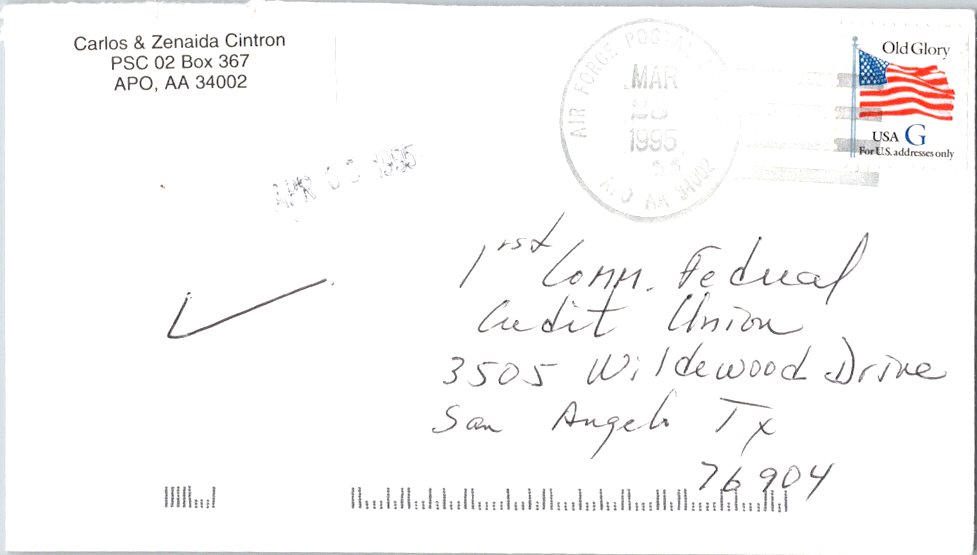 Carlos & Zenaida Cintron
PSC 02 Box 367
APO, AA 34002
AIR FORCE POSTAL
MAR
1995
APO AA 34002
Old Glory
USA G
For U.S. addresses only
APR 1995
1rst Comm. Federal
Credit Union
3505 Wildewood Drive
San Angelo Tx
76904